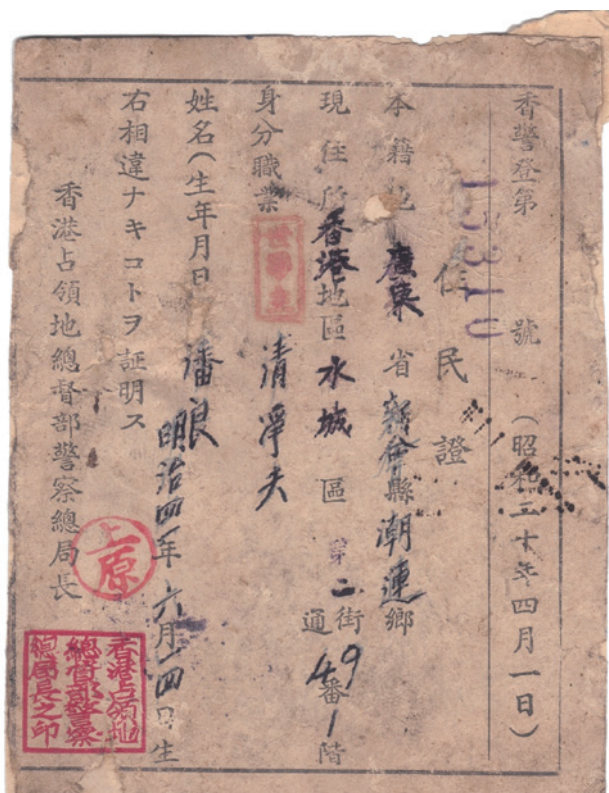 香警登第15310號(昭和二十年四月一日)
住民證
本籍地廣東省新會縣潮連鄉
現住所香港地區水城區第二街通49番1階
身分職業 世帶主 清淨夫
姓名(生年月日 潘良 明治四一年六月十四日生
右相違ナキコトヲ証明ス
香港占領地總督部警察總局長
上原
香港占領地總督部警察總局長之印